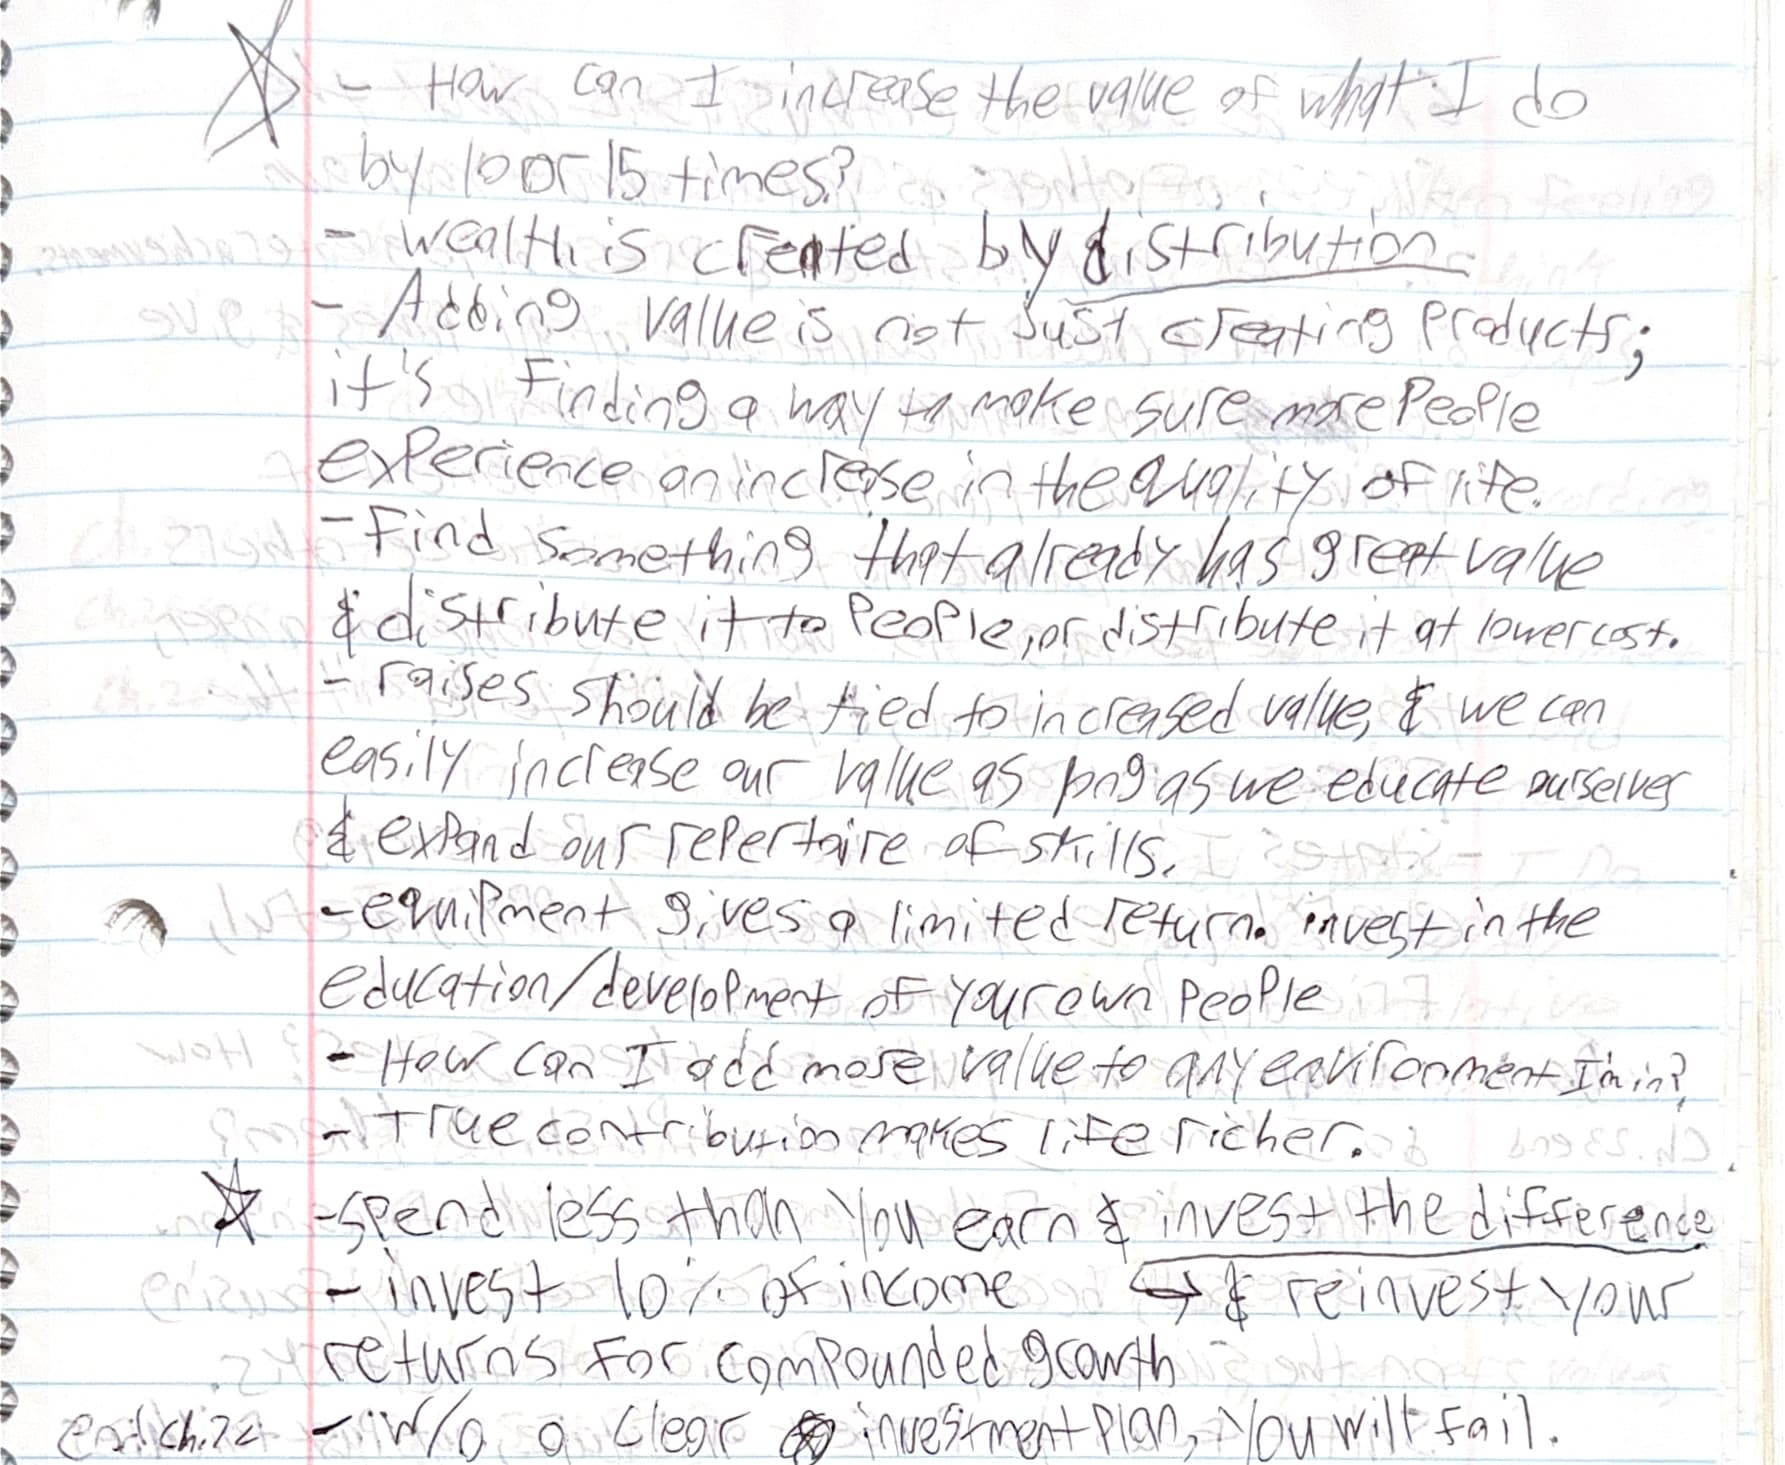 - How can I increase the value of what I do
by 10 or 15 times?
- wealth is created by distribution
- Adding value is not just creating products;
it's finding a way to make sure more people
experience an increase in the quality of life.
- Find something that already has great value
& distribute it to people, or distribute it at lower cost.
- raises should be tied to increased value, & we can
easily increase our value as long as we educate ourselves
& expand our repertoire of skills.
- equipment gives a limited return. invest in the
education/development of your own people
- How can I add more value to any environment I'm in?
- True contribution makes life richer.
- spend less than you earn & invest the difference
- invest 10% of income ↪ & reinvest your
returns for compounded growth
end ch. 22 - w/o a clear investment plan, you will fail.